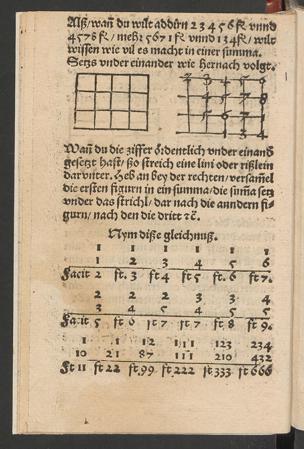 Alß/wañ du wilt addirn 2 3 4 5 6 fl vnnd
4 5 7 8 fl/ mehr 5 6 7 1 fl vnnd 1 3 4 fl/ wilt
wissen wie vil es macht in einer summa.
Setzs vnder einander wie hernach volgt.
2 3 4 5 6
4 5 7 8
5 6 7 1
1 3 4
Wañ du die ziffer ördentlich vnder einand
gesetzt hast/ so streich eine lini oder rißlein
darunter. Heb an bey der rechten/ versamel
die ersten figurn in ein summa/ die suma setz
vnder das strichl/ dar nach die anndern fi-
gurn/ nach den die dritt ꝛc.
Nym diße gleichnuß.
1 1 1 1 1 1
1 2 3 4 5 6
Facit 2 ft. 3 ft 4 ft 5 ft. 6 ft 7.
2 2 2 3 3 4
3 4 5 4 5 5
Facit 5 ft 6 ft 7 ft 7 ft 8 ft 9.
1 1 12 111 123 234
10 21 87 111 210 432
ft 11 ft 22 ft. 99 ft. 222 ft 333 ft 666